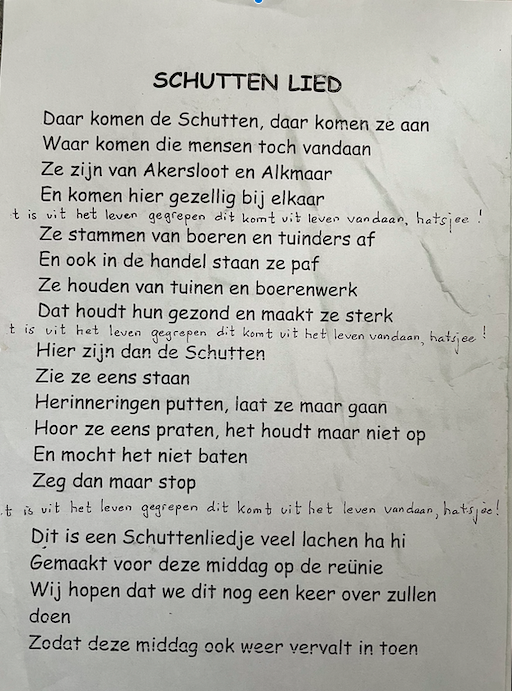 SCHUTTEN LIED
Daar komen de Schutten, daar komen ze aan
Waar komen die mensen toch vandaan
Ze zijn van Akersloot en Alkmaar
En komen hier gezellig bij elkaar
t is uit het leven gegrepen dit komt uit leven vandaan, hatsjee!
Ze stammen van boeren en tuinders af
En ook in de handel staan ze paf
Ze houden van tuinen en boerenwerk
Dat houdt hun gezond en maakt ze sterk
t is uit het leven gegrepen dit komt uit het leven vandaan, hatsjee!
Hier zijn dan de Schutten
Zie ze eens staan
Herinneringen putten, laat ze maar gaan
Hoor ze eens praten, het houdt maar niet op
En mocht het niet baten
Zeg dan maar stop
t is uit het leven gegrepen dit komt uit het leven vandaan, hatsjee!
Dit is een Schuttenliedje veel lachen ha hi
Gemaakt voor deze middag op de reünie
Wij hopen dat we dit nog een keer over zullen
doen
Zodat deze middag ook weer vervalt in toen